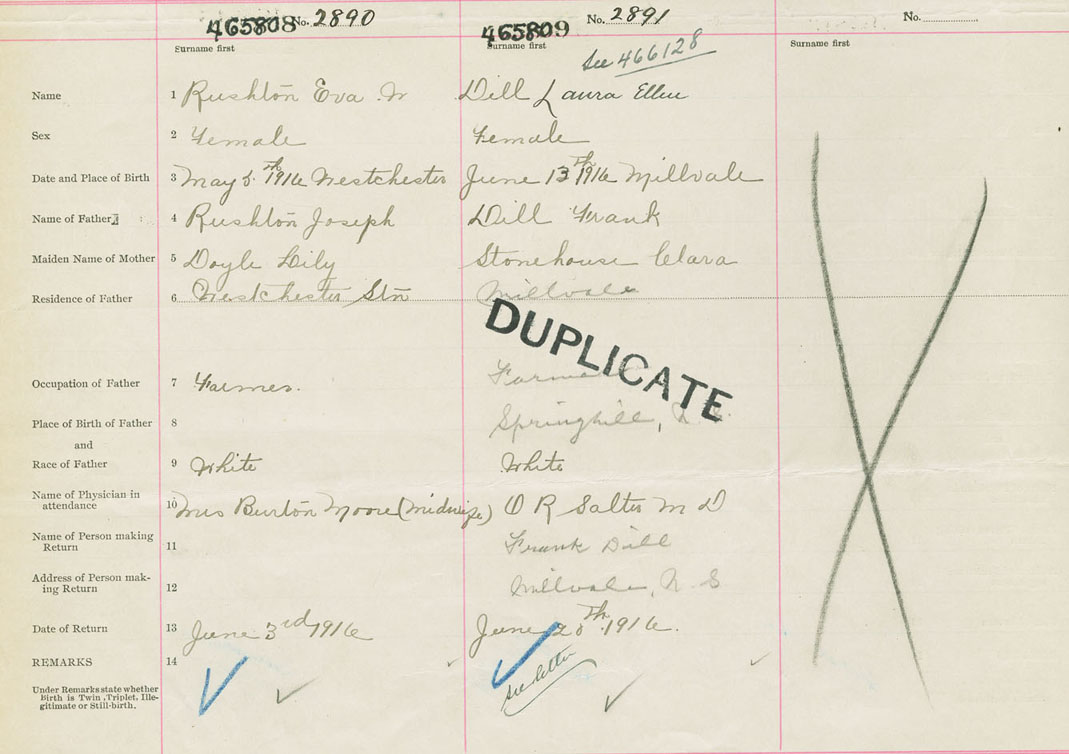 465808 No. 2890
465809 No. 2891
No.
Surname first
Surname first
Surname first
See 466128
Name 1 Rushton Eva Dill Laura Ellen
Sex 2 Female Female
Date and Place of Birth 3 May 5th 1916 Westchester June 13th 1916 Millvale
Name of Father 4 Rushton Joseph Dill Frank
Maiden Name of Mother 5 Doyle Lily Stonehouse Clara
Residence of Father 6 Westchester Stn Millvale
DUPLICATE
Occupation of Father 7 Farmer. Farmer
Place of Birth of Father 8 Springhill, N.S.
and
Race of Father 9 White White
Name of Physician in
attendance 10 Mrs Burton Moore (Midwife) O R Salter M D
Name of Person making
Return 11 Frank Dill
Address of Person mak-
ing Return 12 Millvale, N. S
Date of Return 13 June 3rd 1916 June 20th 1916.
REMARKS 14
see letter
Under Remarks state whether
Birth is Twin, Triplet, Ille-
gitimate or Still-birth.